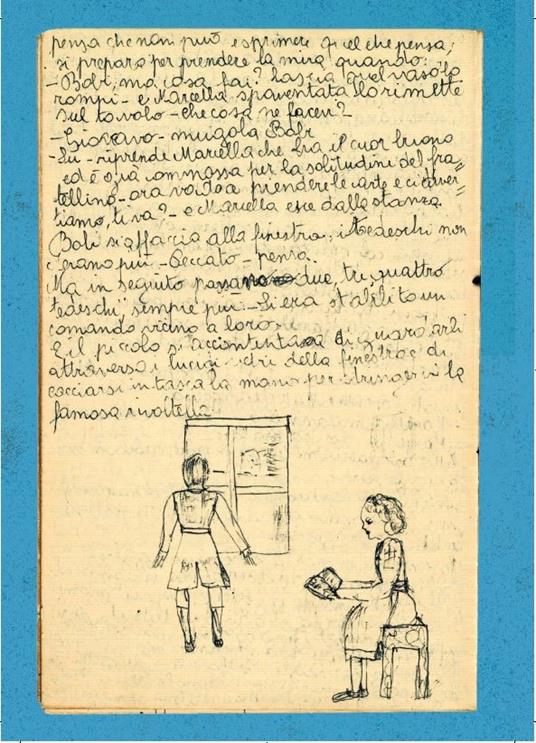 pensa che non può esprimere quel che pensa,
si prepara per prendere la mira quando:
- Bobi, ma cosa fai? Lascia quel vaso lo
rompi - e Marcella spaventata lo rimette
sul tavolo - che cosa ne facevi? -
- Giocavo - mugola Bobi
- Su - riprende Marcella che ha il cuor buono
ed è già commossa per la solitudine del fra=
tellino - ora vado a prendere le carte e ci diver=
tiamo, ti va? - e Marcella esce dalla stanza.
Bobi si affaccia alla finestra, i Tedeschi non
c'erano più - Peccato - pensa.
Ma in seguito passano due, tre, quattro
tedeschi, sempre più - Si era stabilito un
comando vicino a loro.
E il piccolo si accontentava di guardarli
attraverso i lucidi vetri della finestra e di
cacciarsi in tasca la mano per stringervi la
famosa rivoltella